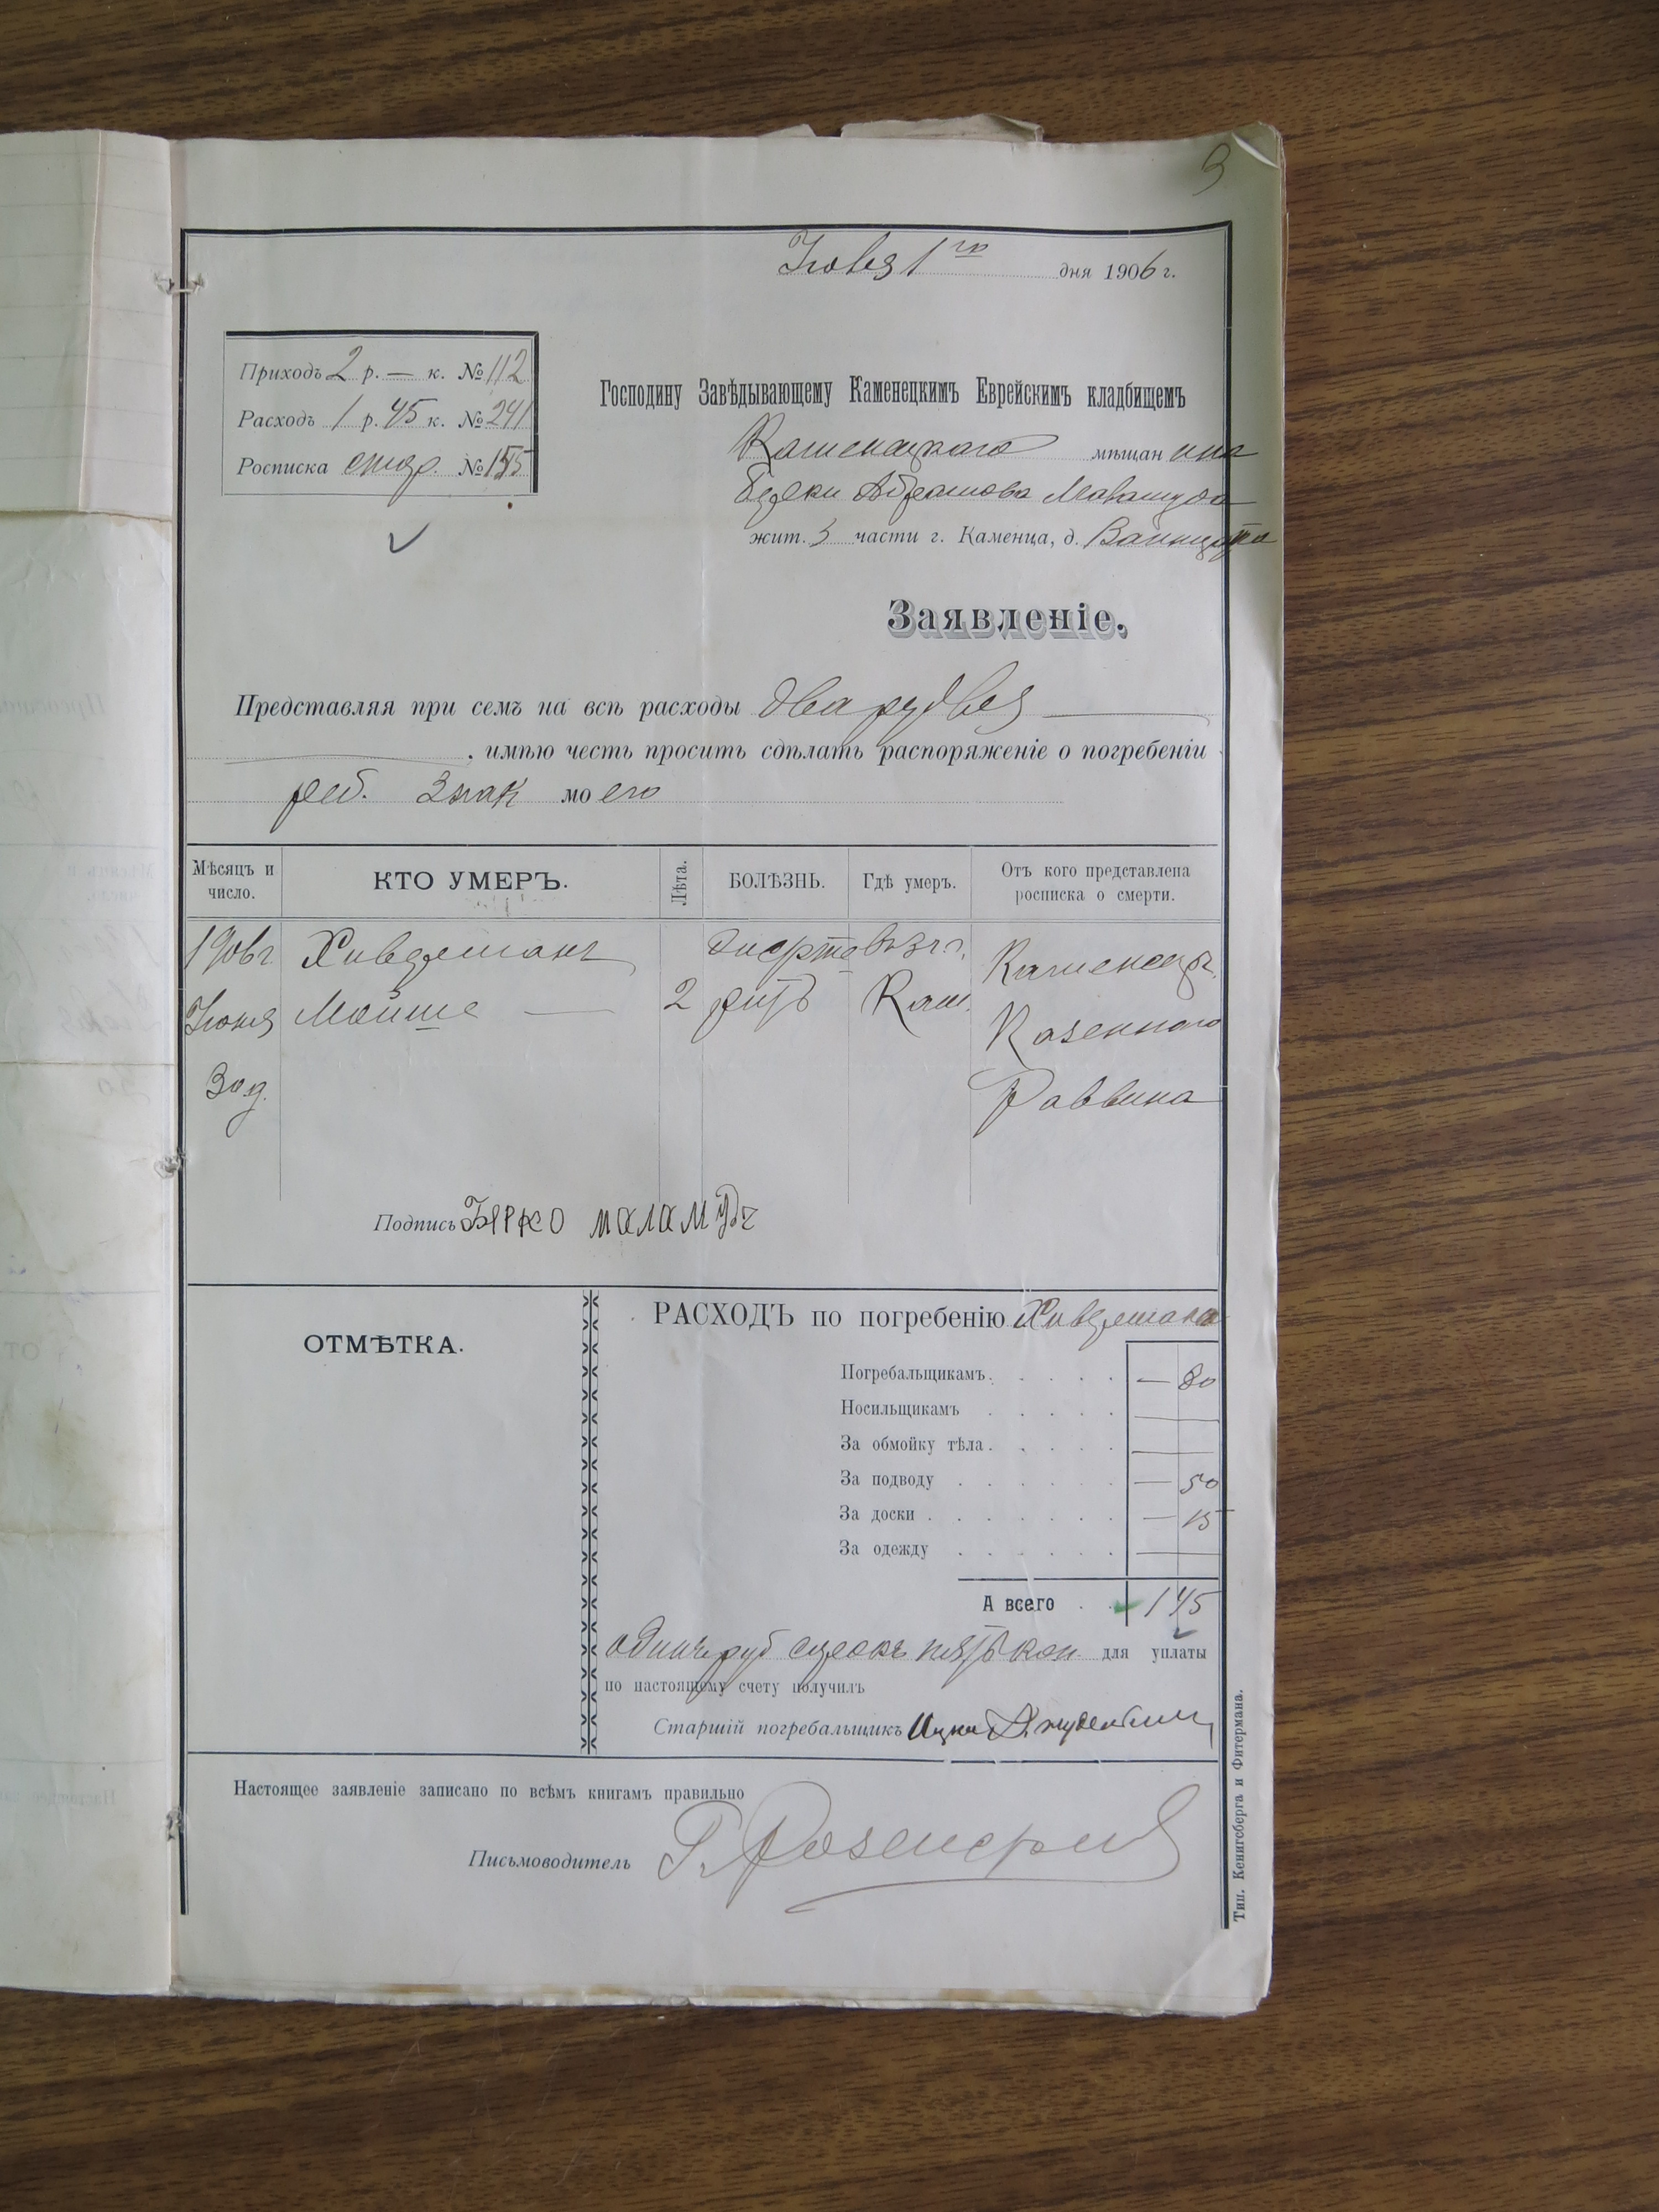 9
Іюля 1го дня 1906 г.
Приходъ 2 р. — к. № 112
Расходъ 1 р. 45 к. № 241
Росписка №
Господину Завѣдывающему Каменецкимъ Еврейскимъ кладбищемъ
Каменецкого мѣщанина
Берки Абрамова Маламуда
жит. 3 части г. Каменца, д.
Заявленіе.
Представляя при семъ на всѣ расходы два рубля
, имѣю честь просить сдѣлать распоряженіе о погребеніи
реб. моего
Мѣсяцъ и число.
КТО УМЕРЪ.
Лѣта.
БОЛѢЗНЬ.
Гдѣ умеръ.
Отъ кого представлена росписка о смерти.
1906 г. Въ г. Каменецк.
Іюня Мойше — 2 Кам. Казеннаго
30 д. Раввина
Подпись Бярко маламудъ
ОТМѢТКА.
РАСХОДЪ по погребенію
Погребальщикамъ. — 80
Носильщикамъ —
За обмойку тѣла. —
За подводу — 50
За доски — 15
За одежду —
А всего 1 45
одинъ руб сорокъ пять коп. для уплаты
по настоящему счету получилъ
Старшій погребальщикъ
Настоящее заявленіе записано по всѣмъ книгамъ правильно
Письмоводитель
Тип. Кенигсберга и Фитермана.